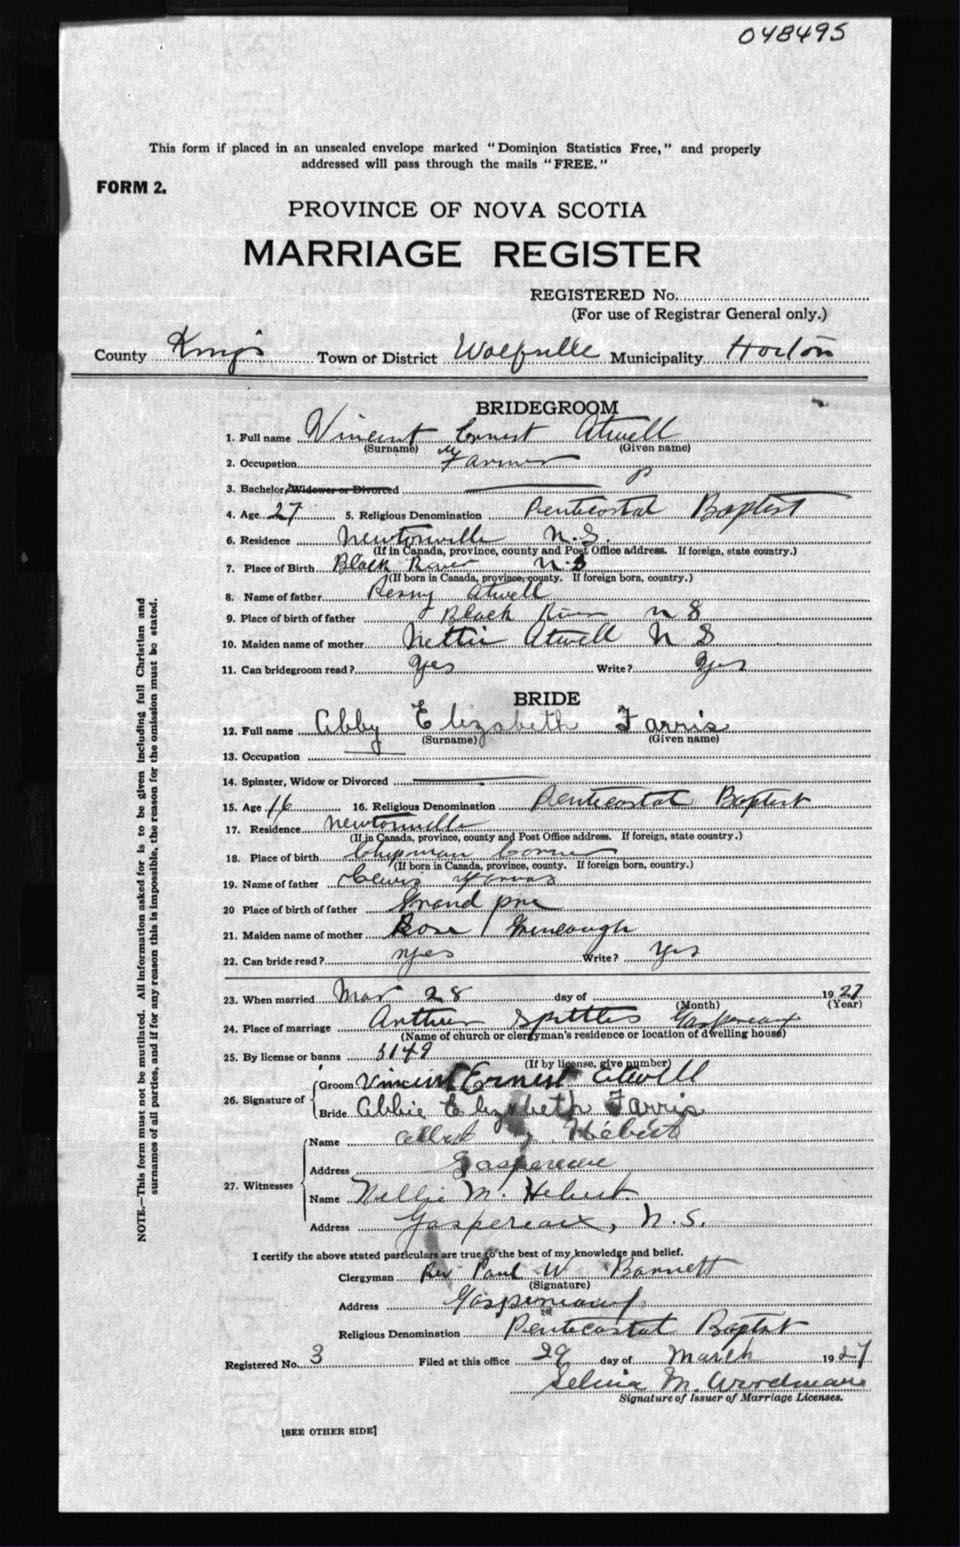 048495
This form if placed in an unsealed envelope marked "Dominion Statistics Free," and properly
addressed will pass through the mails "FREE."
FORM 2.
PROVINCE OF NOVA SCOTIA
MARRIAGE REGISTER
REGISTERED No.
(For use of Registrar General only.)
County Kings Town or District Wolfville Municipality Horton
BRIDEGROOM
1. Full name Vincent Ernest Atwell
(Surname) (Given name)
2. Occupation Farmer
3. Bachelor, Widower or Divorced
4. Age 27 5. Religious Denomination Pentecostal Baptist
6. Residence Newtonville N.S.
(If in Canada, province, county and Post Office address. If foreign, state country.)
7. Place of Birth Black River N.S
(If born in Canada, province, county. If foreign born, country.)
8. Name of father Atwell
9. Place of birth of father Black River N S
10. Maiden name of mother Nettie Atwell N S
11. Can bridegroom read? Yes Write? Yes
BRIDE
12. Full name Abby Elizabeth Farris
(Surname) (Given name)
13. Occupation
14. Spinster, Widow or Divorced
15. Age 16 16. Religious Denomination Pentecostal Baptist
17. Residence Newtonville
(If in Canada, province, county and Post Office address. If foreign, state country.)
18. Place of birth Chipman Corner
(If born in Canada, province, county. If foreign born, country.)
19. Name of father
20 Place of birth of father Grand pre
21. Maiden name of mother Rose
22. Can bride read? yes Write? Yes
23. When married Mar 28 day of 1927
(Month) (Year)
24. Place of marriage Arthur Spittles Gaspereaux
(Name of church or clergyman's residence or location of dwelling house)
25. By license or banns 5149
(If by license, give number)
26. Signature of
Groom Vincent Ernest Atwell
Bride Abbie Elizabeth Farris
27. Witnesses
Name Albert Hebert
Address Gaspereaux
Name Nellie M. Hebert
Address Gaspereaux, N.S.
I certify the above stated particulars are true to the best of my knowledge and belief.
Clergyman Rev Paul W Barnett
(Signature)
Address Gaspereaux
Religious Denomination Pentecostal Baptist
Registered No. 3 Filed at this office 29 day of March 1927
Selina M. Woodman
Signature of Issuer of Marriage Licenses.
[SEE OTHER SIDE]
NOTE.—This form must not be mutilated. All information asked for is to be given including full Christian and
surnames of all parties, and if for any reason this is impossible, the reason for the omission must be stated.